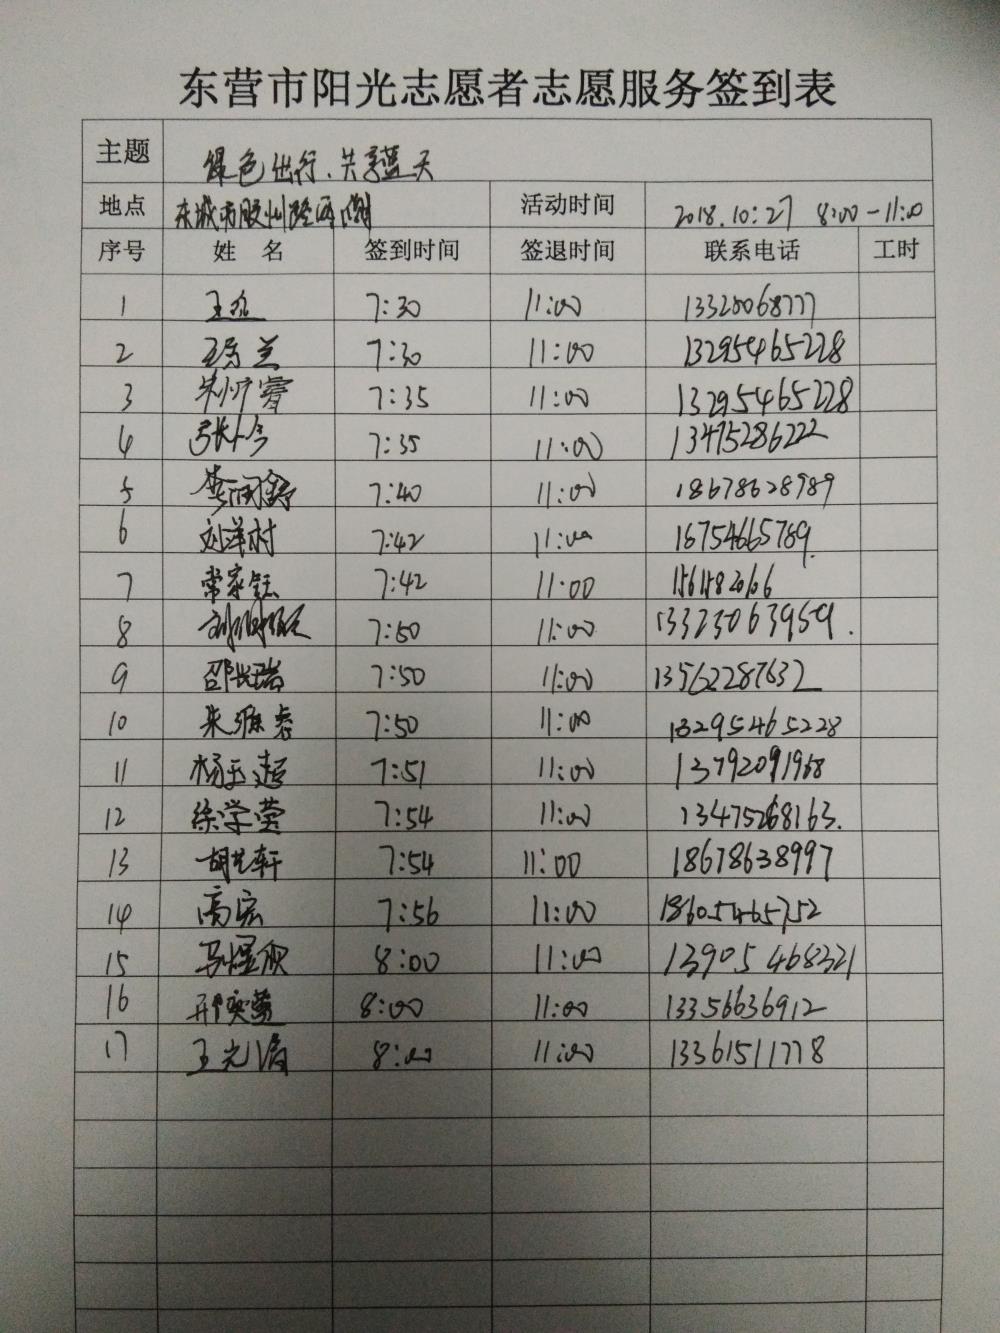 东营市阳光志愿者志愿服务签到表
主题 绿色出行、共享蓝天
地点 东城市胶州路 活动时间 2018.10:27 8:00-11:00
序号 姓 名 签到时间 签退时间 联系电话 工时
1 7:30 11:00 13320068777
2 7:30 11:00 13295465228
3 7:35 11:00 13295465228
4 7:35 11:00 13475286222
5 7:40 11:00 18678628989
6 刘洋村 7:42 11:00 18754665789
7 常家钰 7:42 11:00
8 7:50 11:00
9 邵长瑞 7:50 11:00 13562287632
10 朱雅睿 7:50 11:00 13295465228
11 杨玉超 7:51 11:00 13792091968
12 徐学莹 7:54 11:00 13475268163.
13 胡艺轩 7:54 11:00 18678638997
14 高宏 7:56 11:00 18605465752
15 马煜欣 8:00 11:00 13905468321
16 邢奕莹 8:00 11:00 13356636912
17 王光海 8:00 11:00 13361511778